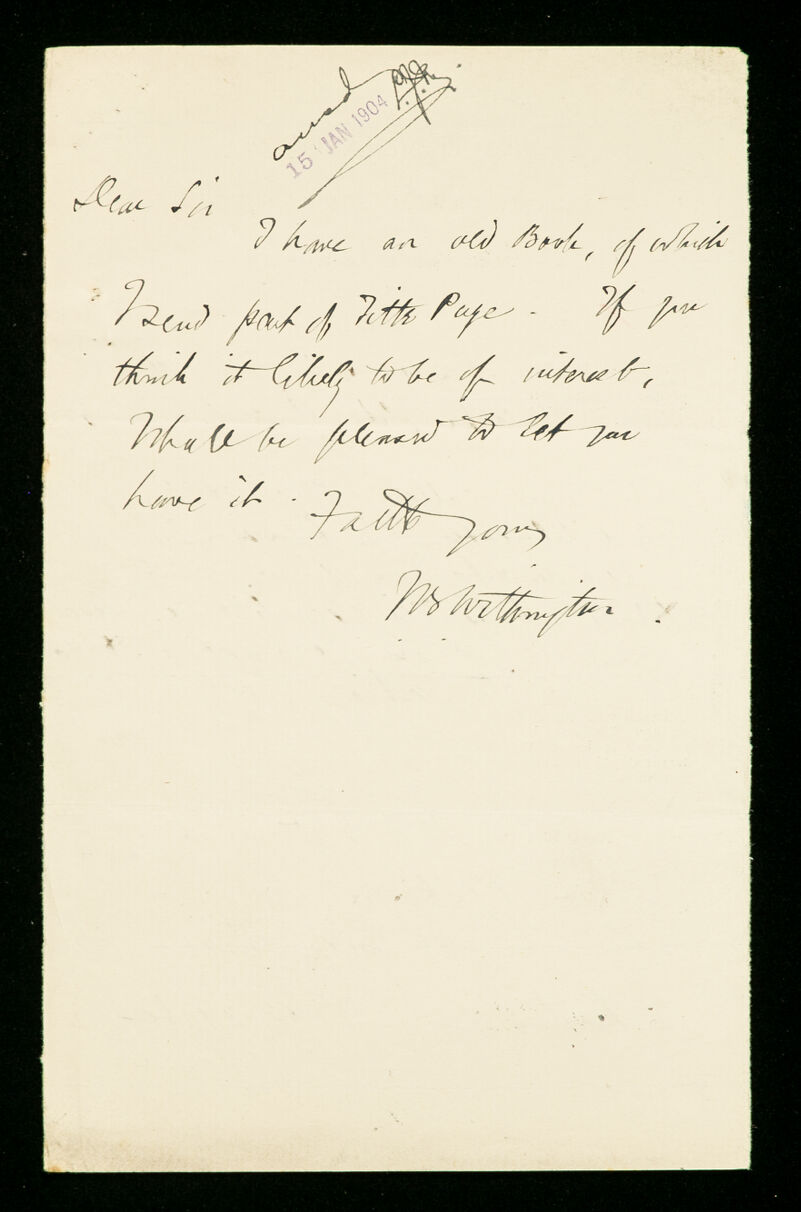 ansd
15 JAN 1904
Dear Sir
I have an old Book, of which
I send part of Title Page. If you
think it likely to be of interest,
I shall be pleased to let you
have it.
Faith yours
Withington